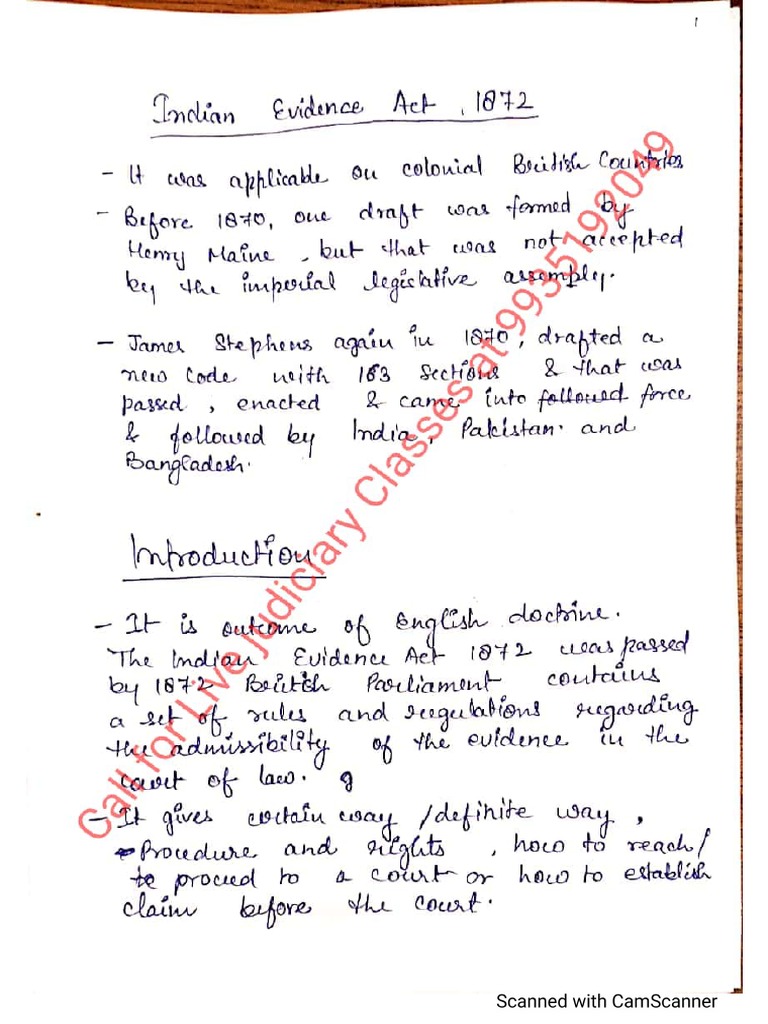 1
Indian Evidence Act, 1872
- It was applicable on colonial British Countries
- Before 1870, one draft was formed by
Henry Maine, but that was not accepted
by the imperial legislative assembly.
- James Stephens again in 1870, drafted a
new code with 163 sections & that was
passed, enacted & came into followed force
& followed by India, Pakistan. and
Bangladesh.
Introduction
- It is outcome of English doctrine.
The Indian Evidence Act 1872 was passed
by 1872 British Parliament contains
a set of rules and regulations regarding
the admissibility of the evidence in the
court of law.
- It gives certain way / definite way,
Procedure and rights, how to reach/
to proceed to a court or how to establish
claim before the court.
Call for Live Judiciary Classes at 9935192049
Scanned with CamScanner